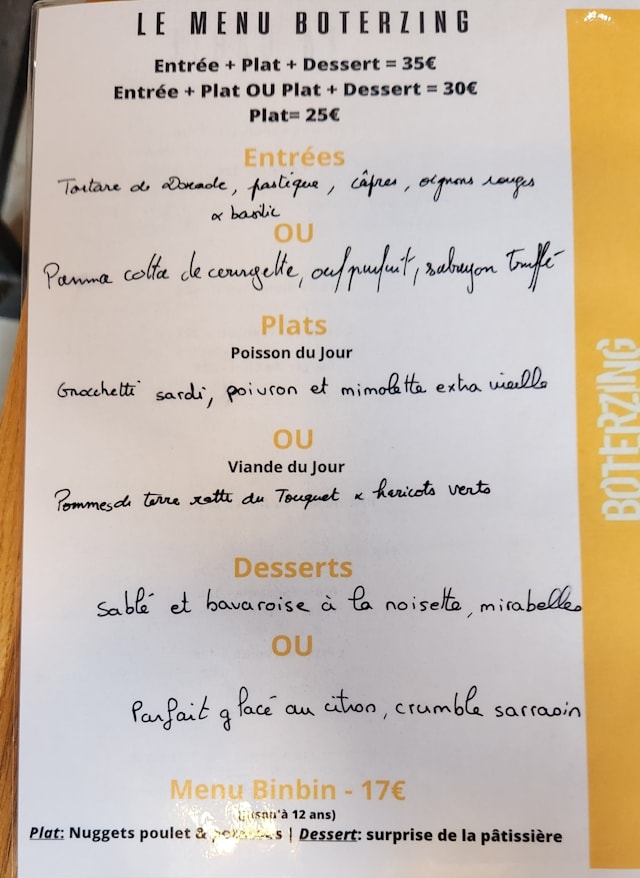 LE MENU BOTERZING
Entrée + Plat + Dessert = 35€
Entrée + Plat OU Plat + Dessert = 30€
Plat= 25€
Entrées
Tartare de Dorade, pastique, câpres, oignons rouges
& basilic
OU
Panna cotta de courgette, œuf parfait, sabayon truffé
Plats
Poisson du Jour
Gnocchetti sardi, poivron et mimolette extra vieille
OU
Viande du Jour
Pommes de terre ratte du Touquet & haricots verts
Desserts
Sablé et bavaroise à la noisette, mirabelles
OU
Parfait glacé au citron, crumble sarrasin
Menu Binbin - 17€
(jusqu'à 12 ans)
Plat: Nuggets poulet & | Dessert: surprise de la pâtissière
BOTERZING